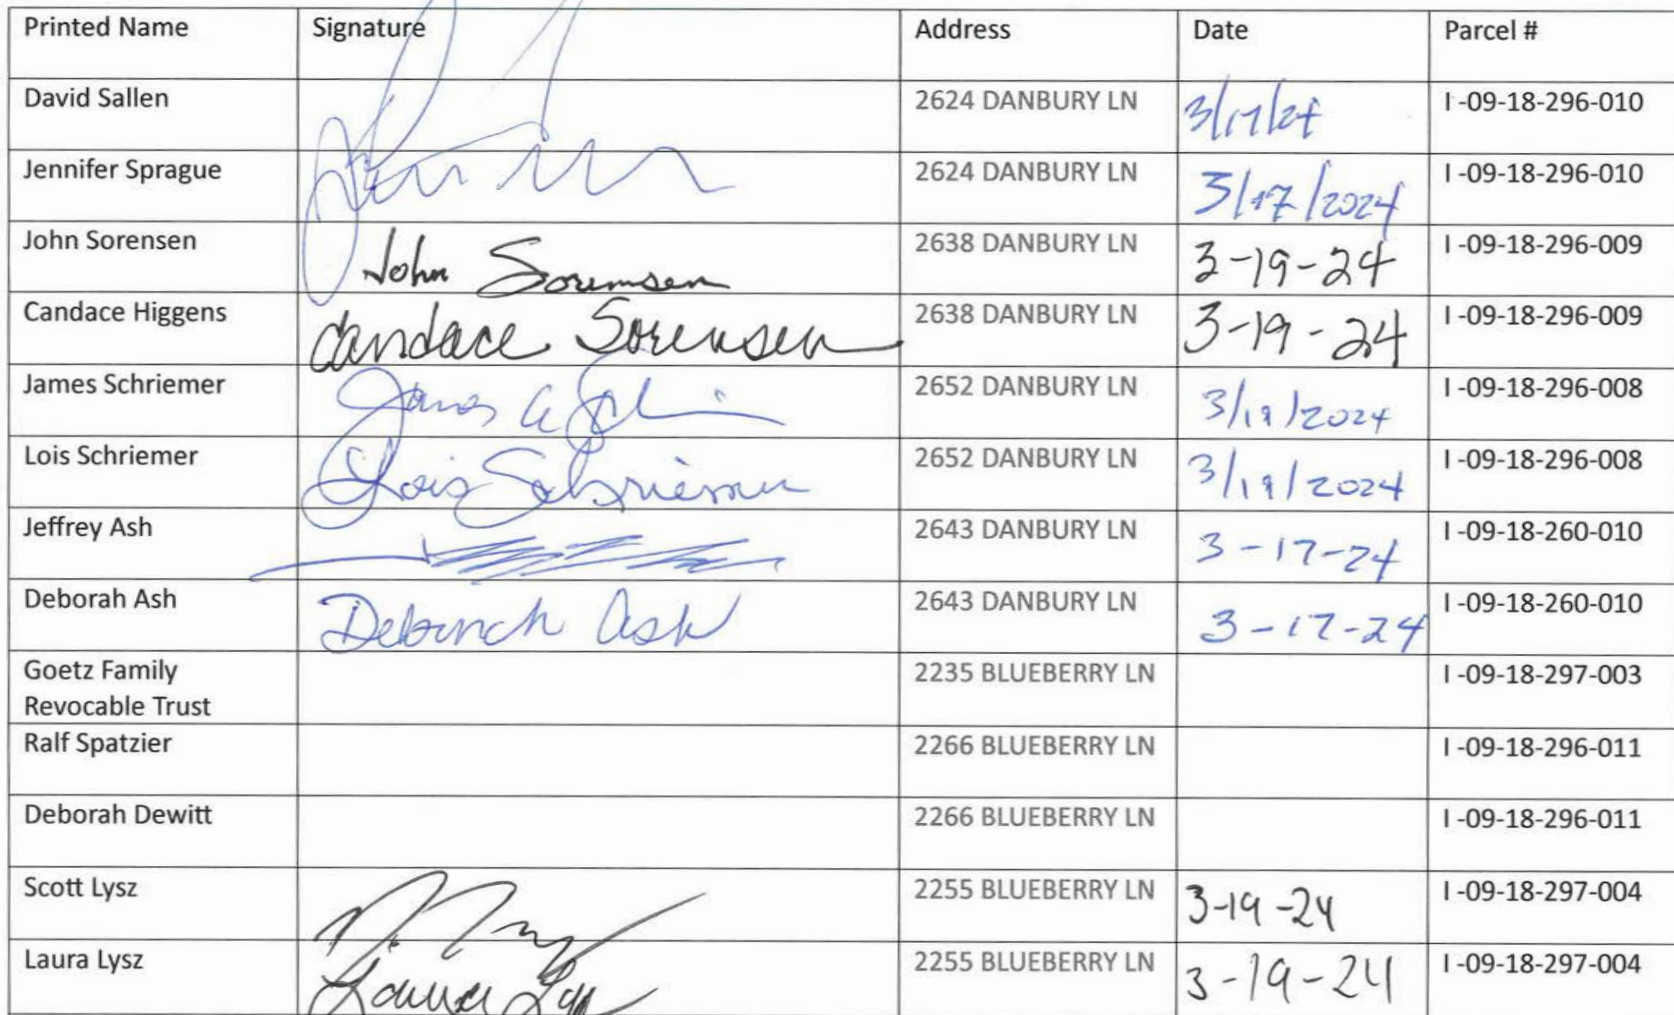 Printed Name Signature Address Date Parcel #
David Sallen 2624 DANBURY LN 3/17/24 I -09-18-296-010
Jennifer Sprague 2624 DANBURY LN 3/17/2024 I -09-18-296-010
John Sorensen John Sorensen 2638 DANBURY LN 3-19-24 I -09-18-296-009
Candace Higgens Candace Sorensen 2638 DANBURY LN 3-19-24 I -09-18-296-009
James Schriemer James A 2652 DANBURY LN 3/19/2024 I -09-18-296-008
Lois Schriemer Lois Schriemer 2652 DANBURY LN 3/19/2024 I -09-18-296-008
Jeffrey Ash 2643 DANBURY LN 3-17-24 I -09-18-260-010
Deborah Ash Deborah Ash 2643 DANBURY LN 3-17-24 I -09-18-260-010
Goetz Family 2235 BLUEBERRY LN I -09-18-297-003
Revocable Trust
Ralf Spatzier 2266 BLUEBERRY LN I -09-18-296-011
Deborah Dewitt 2266 BLUEBERRY LN I -09-18-296-011
Scott Lysz 2255 BLUEBERRY LN 3-19-24 I -09-18-297-004
Laura Lysz Laura 2255 BLUEBERRY LN 3-19-24 I -09-18-297-004